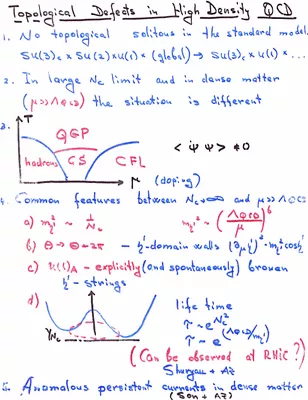 Topological Defects in High Density QCD
1. No topological solitons in the standard model.
SU(3)c × SU(2) × U(1) × (global) → SU(3)c × U(1) × ...
2. In large Nc limit and in dense matter
(μ >> ΛQCD) the situation is different
3.
T
QGP
hadrons CS CFL
μ (doping)
< ψ̄ ψ > ≠ 0
4. Common features between Nc → ∞ and μ >> ΛQCD
a) m²η' ~ 1/Nc m²η' ~ (ΛQCD/μ)
b) θ → θ + 2π - η'-domain walls (∂μη')² - m² cos η'
c) U(1)A - explicitly (and spontaneously) broken
η' - strings
d)
1/Nc
life time
τ ~ e^Nc²
τ ~ e^(ΛQCD/mη')
(Can be observed at RHIC?)
Shuryak + AZ
5. Anomalous persistent currents in dense matter
(Son + AZ)